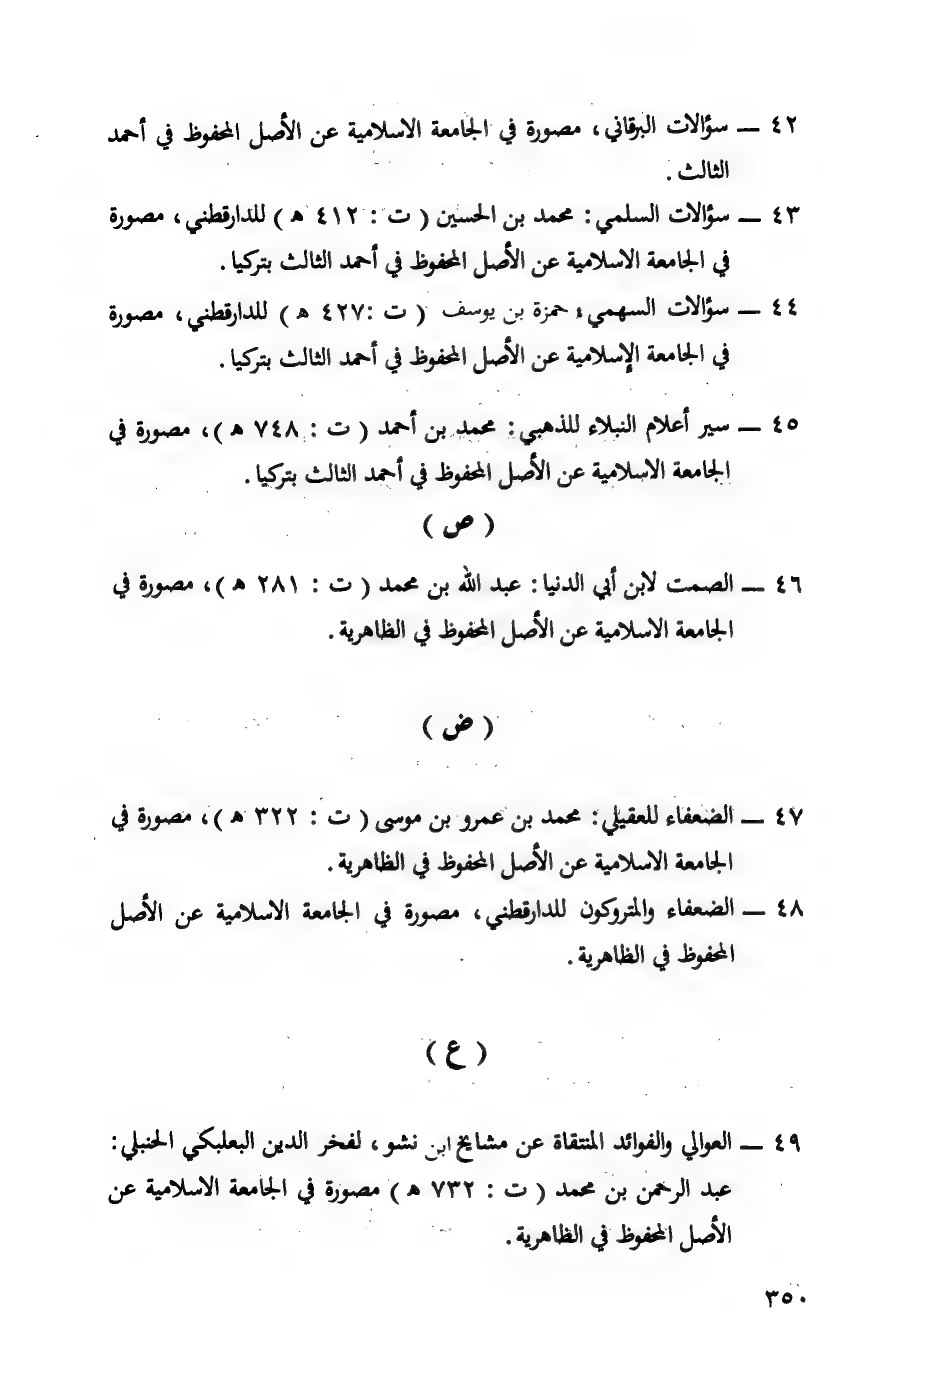 ٤٢ — سؤالات البرقاني، مصورة في الجامعة الاسلامية عن الأصل المحفوظ في أحمد
الثالث .
٤٣ — سؤالات السلمي : محمد بن الحسين ( ت : ٤١٢ هـ ) للدارقطني ، مصورة
في الجامعة الاسلامية عن الأصل المحفوظ في أحمد الثالث بتركيا .
٤٤ — سؤالات السهمي ؛ حمزة بن يوسف ( ت :٤٢٧ هـ ) للدارقطني ، مصورة
في الجامعة الإسلامية عن الأصل المحفوظ في أحمد الثالث بتركيا .
٤٥ — سير أعلام النبلاء للذهبي : محمد بن أحمد ( ت : ٧٤٨ هـ )، مصورة في
الجامعة الاسلامية عن الأصل المحفوظ في أحمد الثالث بتركيا .
( ص )
٤٦ — الصمت لابن أبي الدنيا : عبد الله بن محمد ( ت : ٢٨١ هـ )، مصورة في
الجامعة الاسلامية عن الأصل المحفوظ في الظاهرية .
( ض )
٤٧ — الضعفاء للعقيلي : محمد بن عمرو بن موسى ( ت : ٣٢٢ هـ )، مصورة في
الجامعة الاسلامية عن الأصل المحفوظ في الظاهرية .
٤٨ — الضعفاء والمتروكون للدارقطني ، مصورة في الجامعة الاسلامية عن الأصل
المحفوظ في الظاهرية .
( ع )
٤٩ — العوالي والفوائد المنتقاة عن مشايخ ابن نشو ، لفخر الدين البعلبكي الحنبلي :
عبد الرحمن بن محمد ( ت : ٧٣٢ هـ ) مصورة في الجامعة الاسلامية عن
الأصل المحفوظ في الظاهرية .
٣٥٠